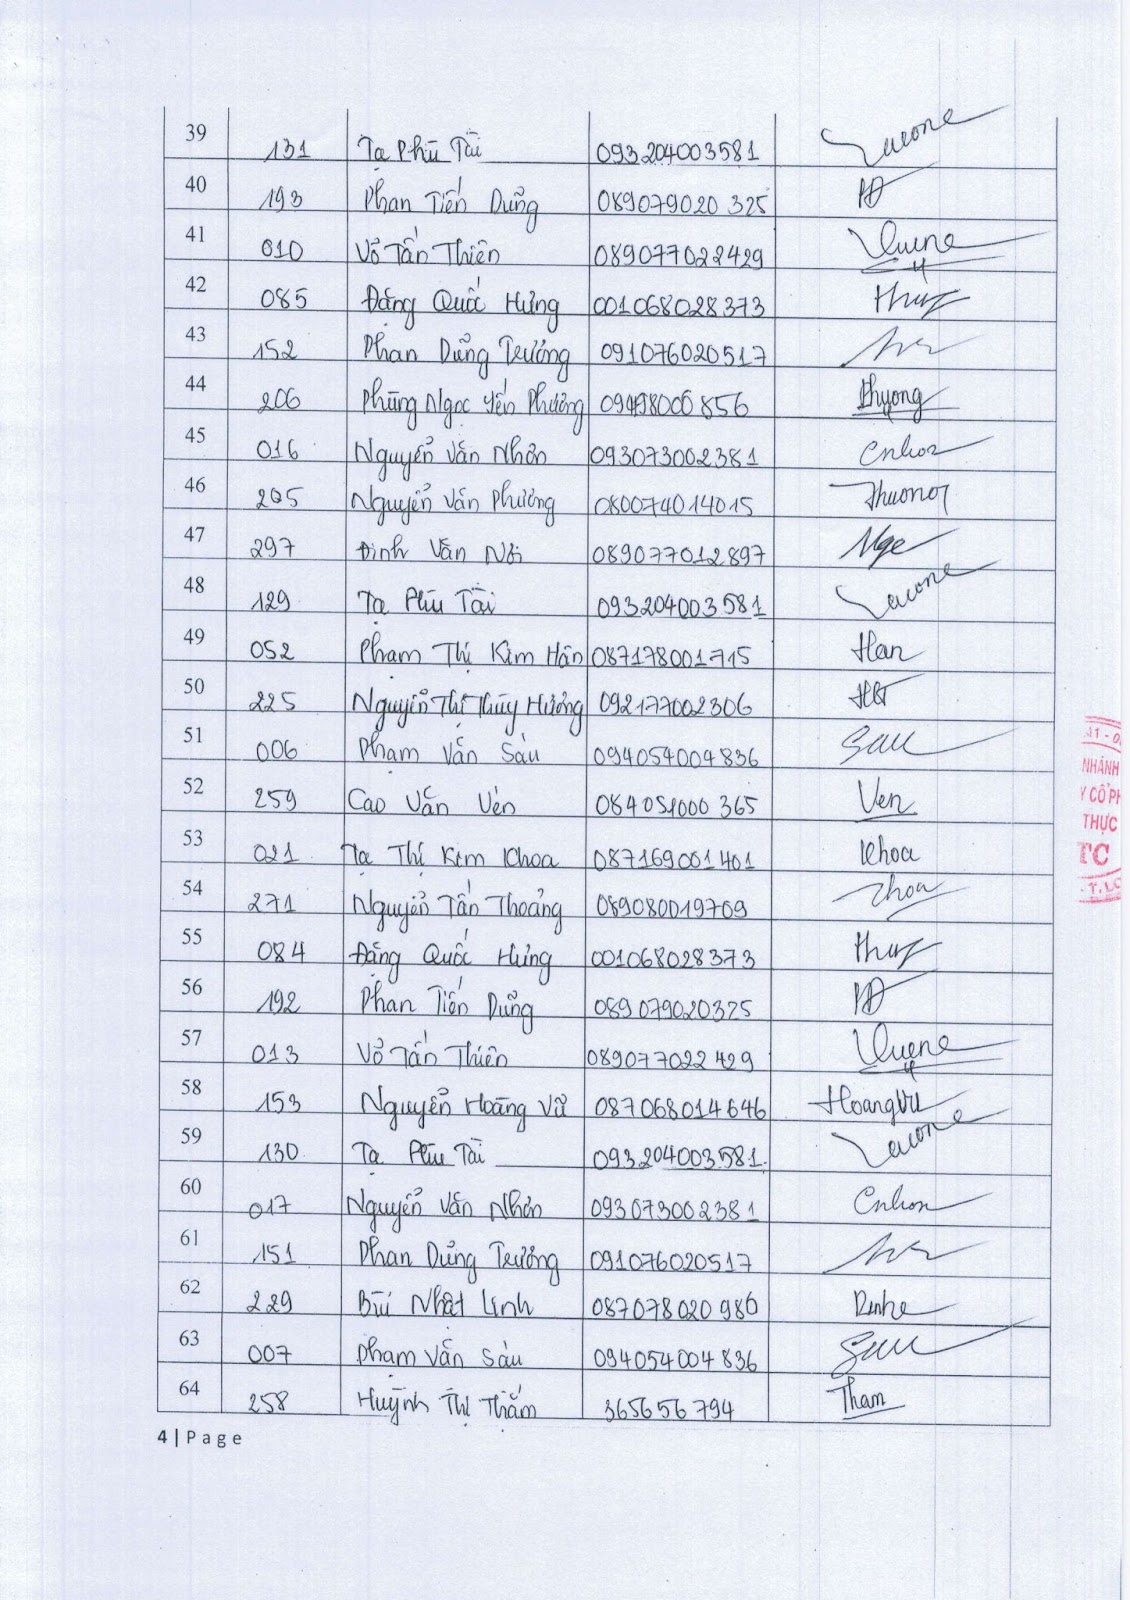 39 131 Tạ Phú Tài 093204003581
40 193 Phan Tiến Dũng 089079020325
41 010 Võ Tấn Thiên 089077022429
42 085 Đặng Quốc Hưng 001068028373
43 152 Phan Dũng Trường 091076020517
44 206 Phùng Ngọc Yến Phương 09498000856 Phương
45 016 Nguyễn Văn Nhơn 093073002381 Cnhon
46 205 Nguyễn Văn Phương 080074014015
47 297 Đinh Văn Nơi 089077012897
48 129 Tạ Phú Tài 093204003581
49 052 Phạm Thị Kim Hân 087178001715 Han
50 225 Nguyễn Thị Thúy Hường 092177002306
51 006 Phạm Văn Sáu 094054004836 Sau
52 259 Cao Văn Vẻn 084051000365 Ven
53 021 Tạ Thị Kim Khoa 087169001401 Khoa
54 271 Nguyễn Tấn Thoảng 089080019709 Thoa
55 084 Đặng Quốc Hưng 001068028373
56 192 Phan Tiến Dũng 089079020325
57 013 Võ Tấn Thiên 089077022429
58 153 Nguyễn Hoàng Vũ 087068014646 HoangVu
59 130 Tạ Phú Tài 093204003581
60 017 Nguyễn Văn Nhơn 093073002381 Cnhon
61 151 Phan Dũng Trường 091076020517
62 229 Bùi Nhật Linh 087078020986
63 007 Phạm Văn Sáu 094054004836 Sau
64 258 Huỳnh Thị Thắm 365656794 Tham
NHÁNH
Y CỔ PH
THỰC
TC
. T.LO
4 | Page